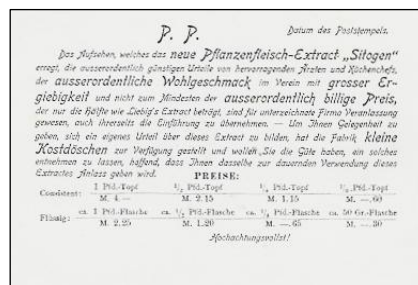 P. P.
Datum des Poststempels.
Das Aufsehen, welches das neue Pflanzenfleisch-Extract „Sitogen"
erregt, die ausserordentlich günstigen Urteile von hervorragenden Ärzten und Küchenchefs,
der ausserordentliche Wohlgeschmack im Verein mit grosser Er-
giebigkeit und nicht zum Mindesten der ausserordentlich billige Preis,
der nur die Hälfte wie Liebig's Extract beträgt, sind für unterzeichnete Firma Veranlassung
gewesen, auch ihrerseits die Einführung zu übernehmen. — Um Ihnen Gelegenheit zu
geben, sich ein eigenes Urteil über dieses Extract zu bilden, hat die Fabrik kleine
Kostdöschen zur Verfügung gestellt und wollen Sie die Güte haben, ein solches
entnehmen zu lassen, hoffend, dass Ihnen dasselbe zur dauernden Verwendung dieses
Extractes Anlass geben wird.
PREISE:
1 Pfd.-Topf ½ Pfd.-Topf ¼ Pfd.-Topf ⅛ Pfd.-Topf
Consistent: M. 4.— M. 2.15 M. 1.15 M. —.60
ca. 1 Pfd.-Flasche ca. ½ Pfd.-Flasche ca. ¼ Pfd.-Flasche ca. 50 Gr.-Flasche
Flüssig: M. 2.25 M. 1.20 M. —.65 M. —.30
Hochachtungsvollst!